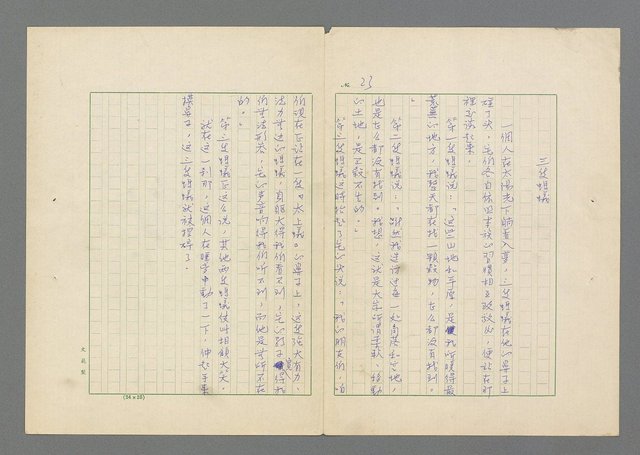 No. 23
三隻螞蟻
一個人在太陽光下睡着入夢，三隻螞蟻在他的鼻子上
碰了頭，它們各自依照本族的習慣相互致敬，便站在那
裡談起來。
第一隻螞蟻說：「這些山地和平原，是我所曉得最
荒蕪的地方，我整天都在找一顆穀物，怎么都沒有找到。
」
第二隻螞蟻說：「雖然我走訪過每一處角落和空地，
也是怎么都沒有找到。我想，這就是大家所謂柔軟、移動
的土地，是五穀不生的。」
第三隻螞蟻這時抬起了它的頭說：「我的朋友們，咱
們現在正站在一隻『太上蟻』的鼻子上，這隻強大有力、
法力無邊的螞蟻，身體大得我們看不到，它的影子寬得我
們無法形容，它的聲音響得我們聽不到，而他是無所不在
的。」
第三隻螞蟻正這么說，其他兩隻螞蟻便相顧大笑。
就在這一剎那，這個人在睡夢中動了一下，伸起手來
搔鼻子，這三隻螞蟻就被捏碎了。
(24×25)